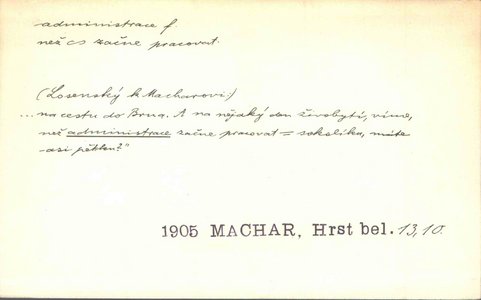 administrace f.
než cs začne pracovat.
(Losenský k Macharovi:)
...na cestu do Brna. A na nějaký den živobytí, víme,
než administrace začne pracovat = sokolíka, máte
asi pětku?"
1905 MACHAR, Hrst bel. 13,10.